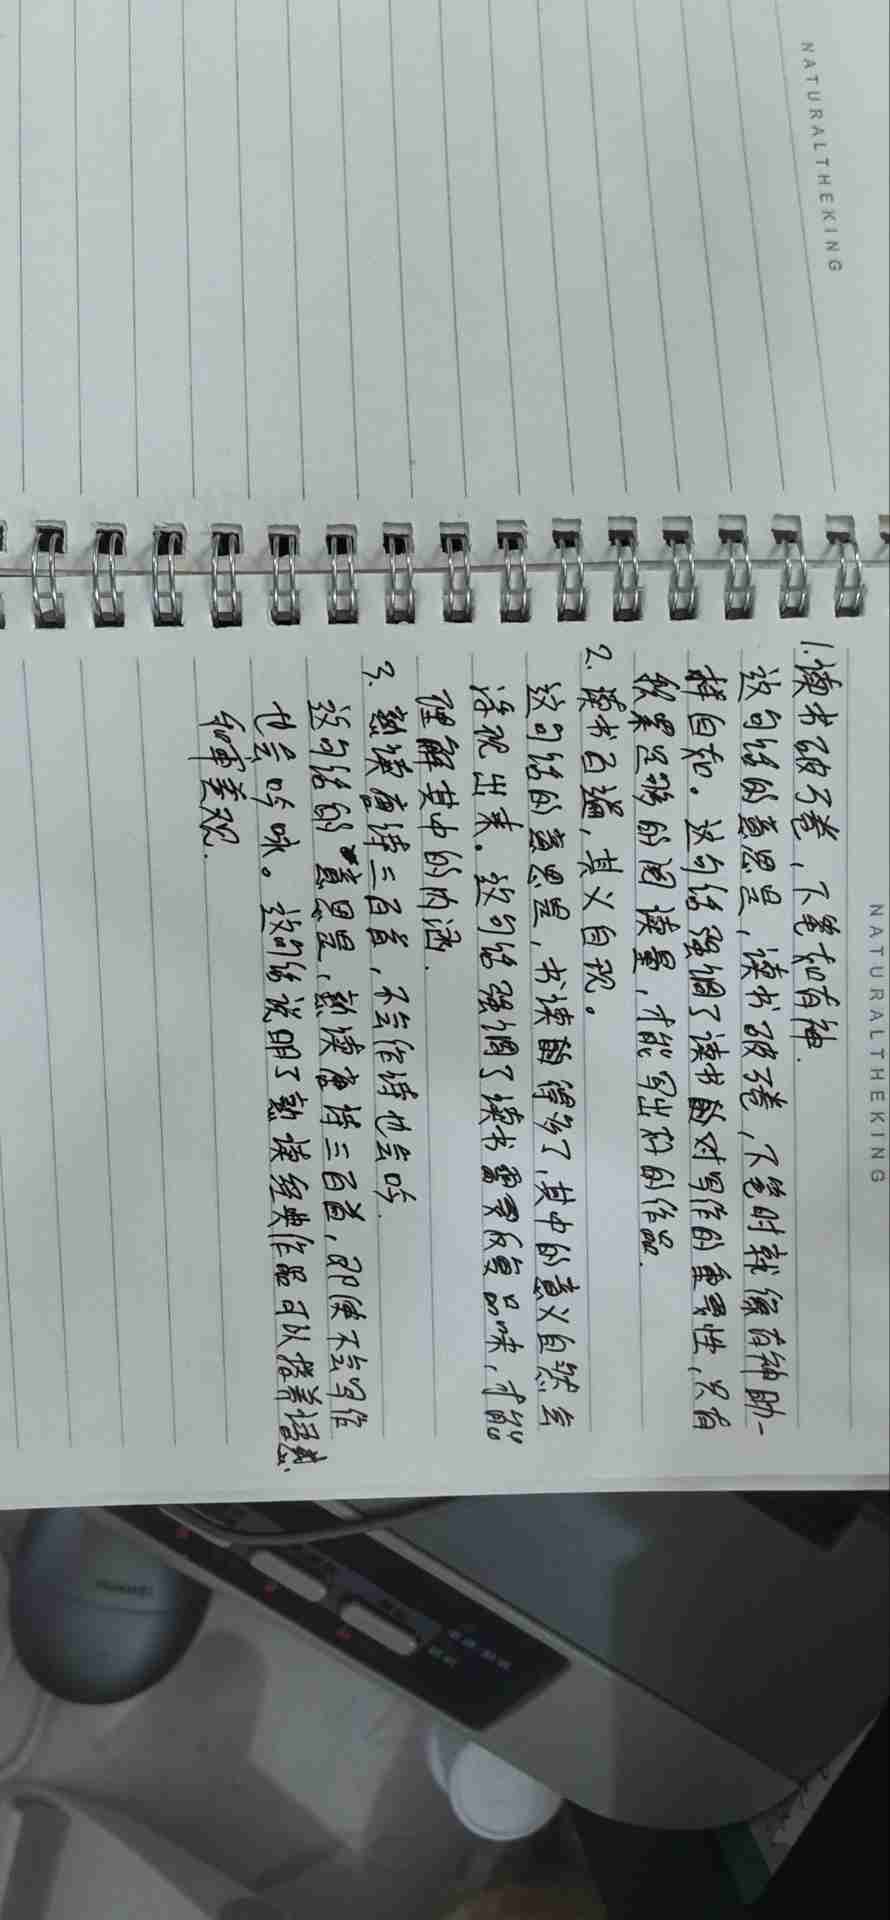 NATURALTHEKING
NATURALTHEKING
1.读书破万卷,下笔如有神.
这句话的意思是,读书破万卷,下笔时就像有神助一
样自如。这句话强调了读书对写作的重要性,只有
积累足够的阅读量,才能写出好的作品.
2.读书百遍,其义自现。
这句话的意思是,书读的得多了,其中的意义自然会
浮现出来。这句话强调了读书需要反复品味,才能
理解其中的内涵.
3.熟读唐诗三百首,不会作诗也会吟.
这句话的意思是,熟读唐诗三百首,即使不会写作
也会吟咏。这句话说明了熟读经典作品可以培养语感.
和审美观.
HUAWEI